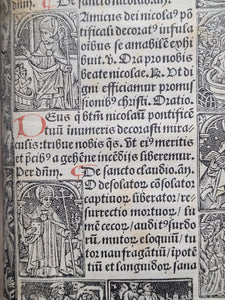 De sancto nicolao. añ.
Amicus dei nicola⁹ pō
tificali decorat⁹ infula
oibus se amabilē exhi
buit. ꝟ. Ora pro nobis
beate nicolae. ℞. Ut di
gni efficiamur promis
sionibus christi. Oratio.
DEus q̇ btm̄ nicolaū pontificē
tuū inumeris decorasti mira
culis: tribue nobis q̄s. ut ei⁹ meritis
et p̄cib⁹ a gehēne incēdijs liberemur.
Per dn̄m. De sancto claudio. añ.
O desolatorū cōsolator
captiuorū liberator/ re
surrectio mortuor̄/ lu
mē cecor̄/ audit⁹ surdo
rū/ mutorū eloquiū/ tu
tor naufragātiū/ īpotē
tiū et languidor̄ sana